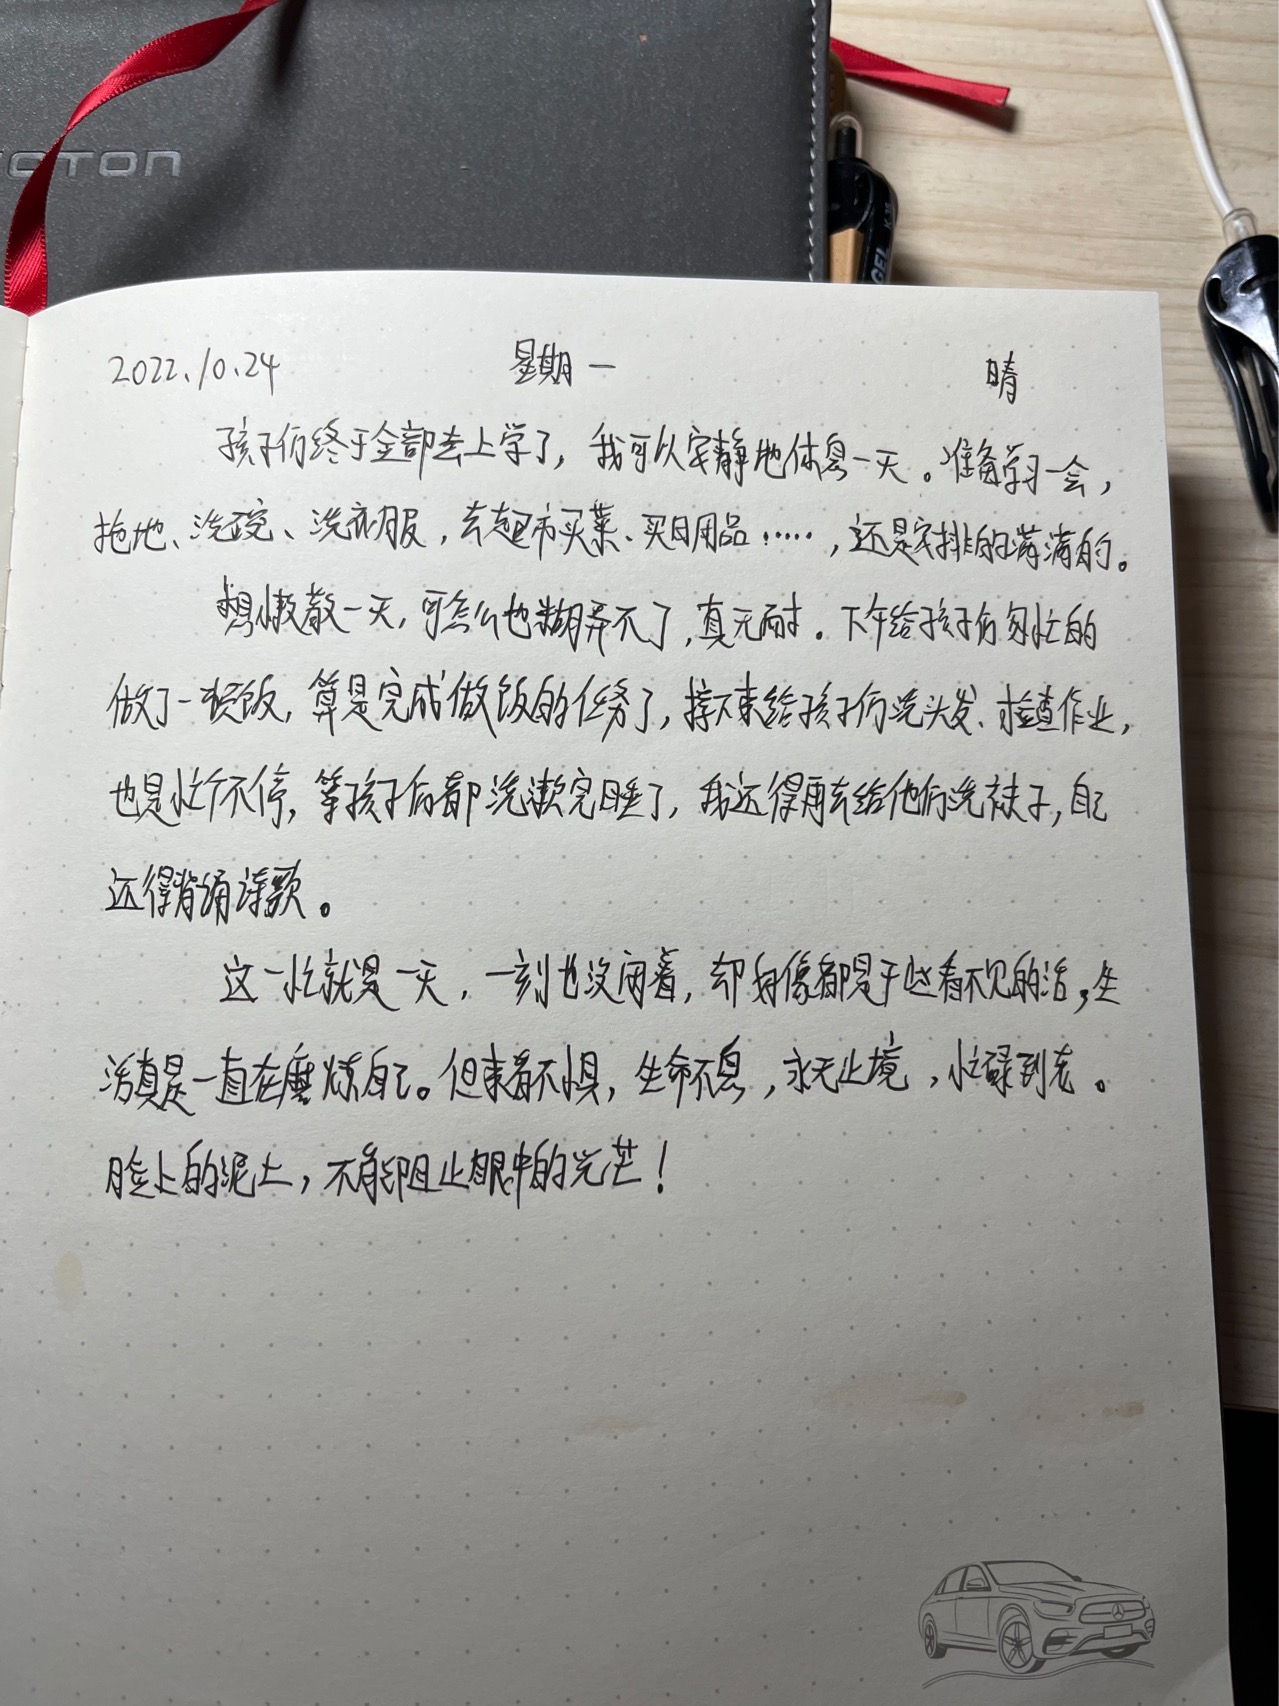 OTON
GEL
2022.10.24 星期一 晴
孩子们终于全部去上学了，我可以安静地休息一天。准备学习一会，
拖地、洗碗、洗衣服，去超市买菜、买日用品……，还是安排的满满的。
想懒散一天，可怎么也糊弄不了，真无耐。下午给孩子们匆忙的
做了一顿饭，算是完成做饭的任务了，接下来给孩子们洗头发、检查作业，
也是忙个不停，等孩子们都洗漱完睡了，我还得再去给他们洗袜子，自己
还得背诵诗歌。
这一忙就是一天，一刻也没闲着，却好像都是干些看不见的活，生
活真是一直在磨炼自己。但来者不惧，生命不息，永无止境，忙碌到老。
脸上的泥土，不能阻止眼中的光芒！